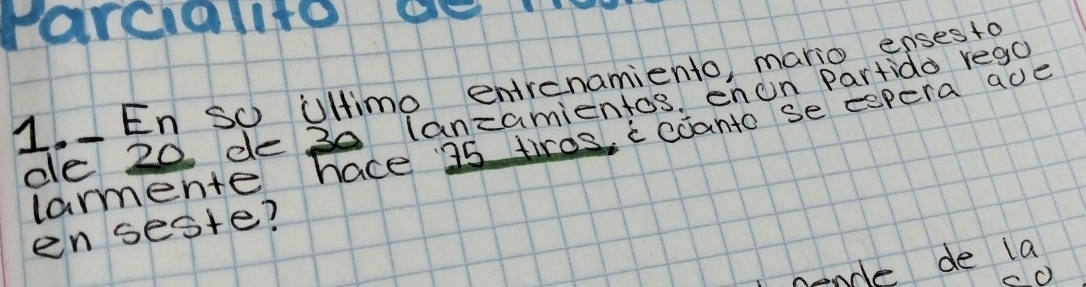 Parcialito de
1.- En so último entrenamiento, mario ensesto
de 20 de 30 lanzamientos. enun Partido rego
larmente hace 75 tiros, ¿ cuanto se espera aue
en seste?
de la
so